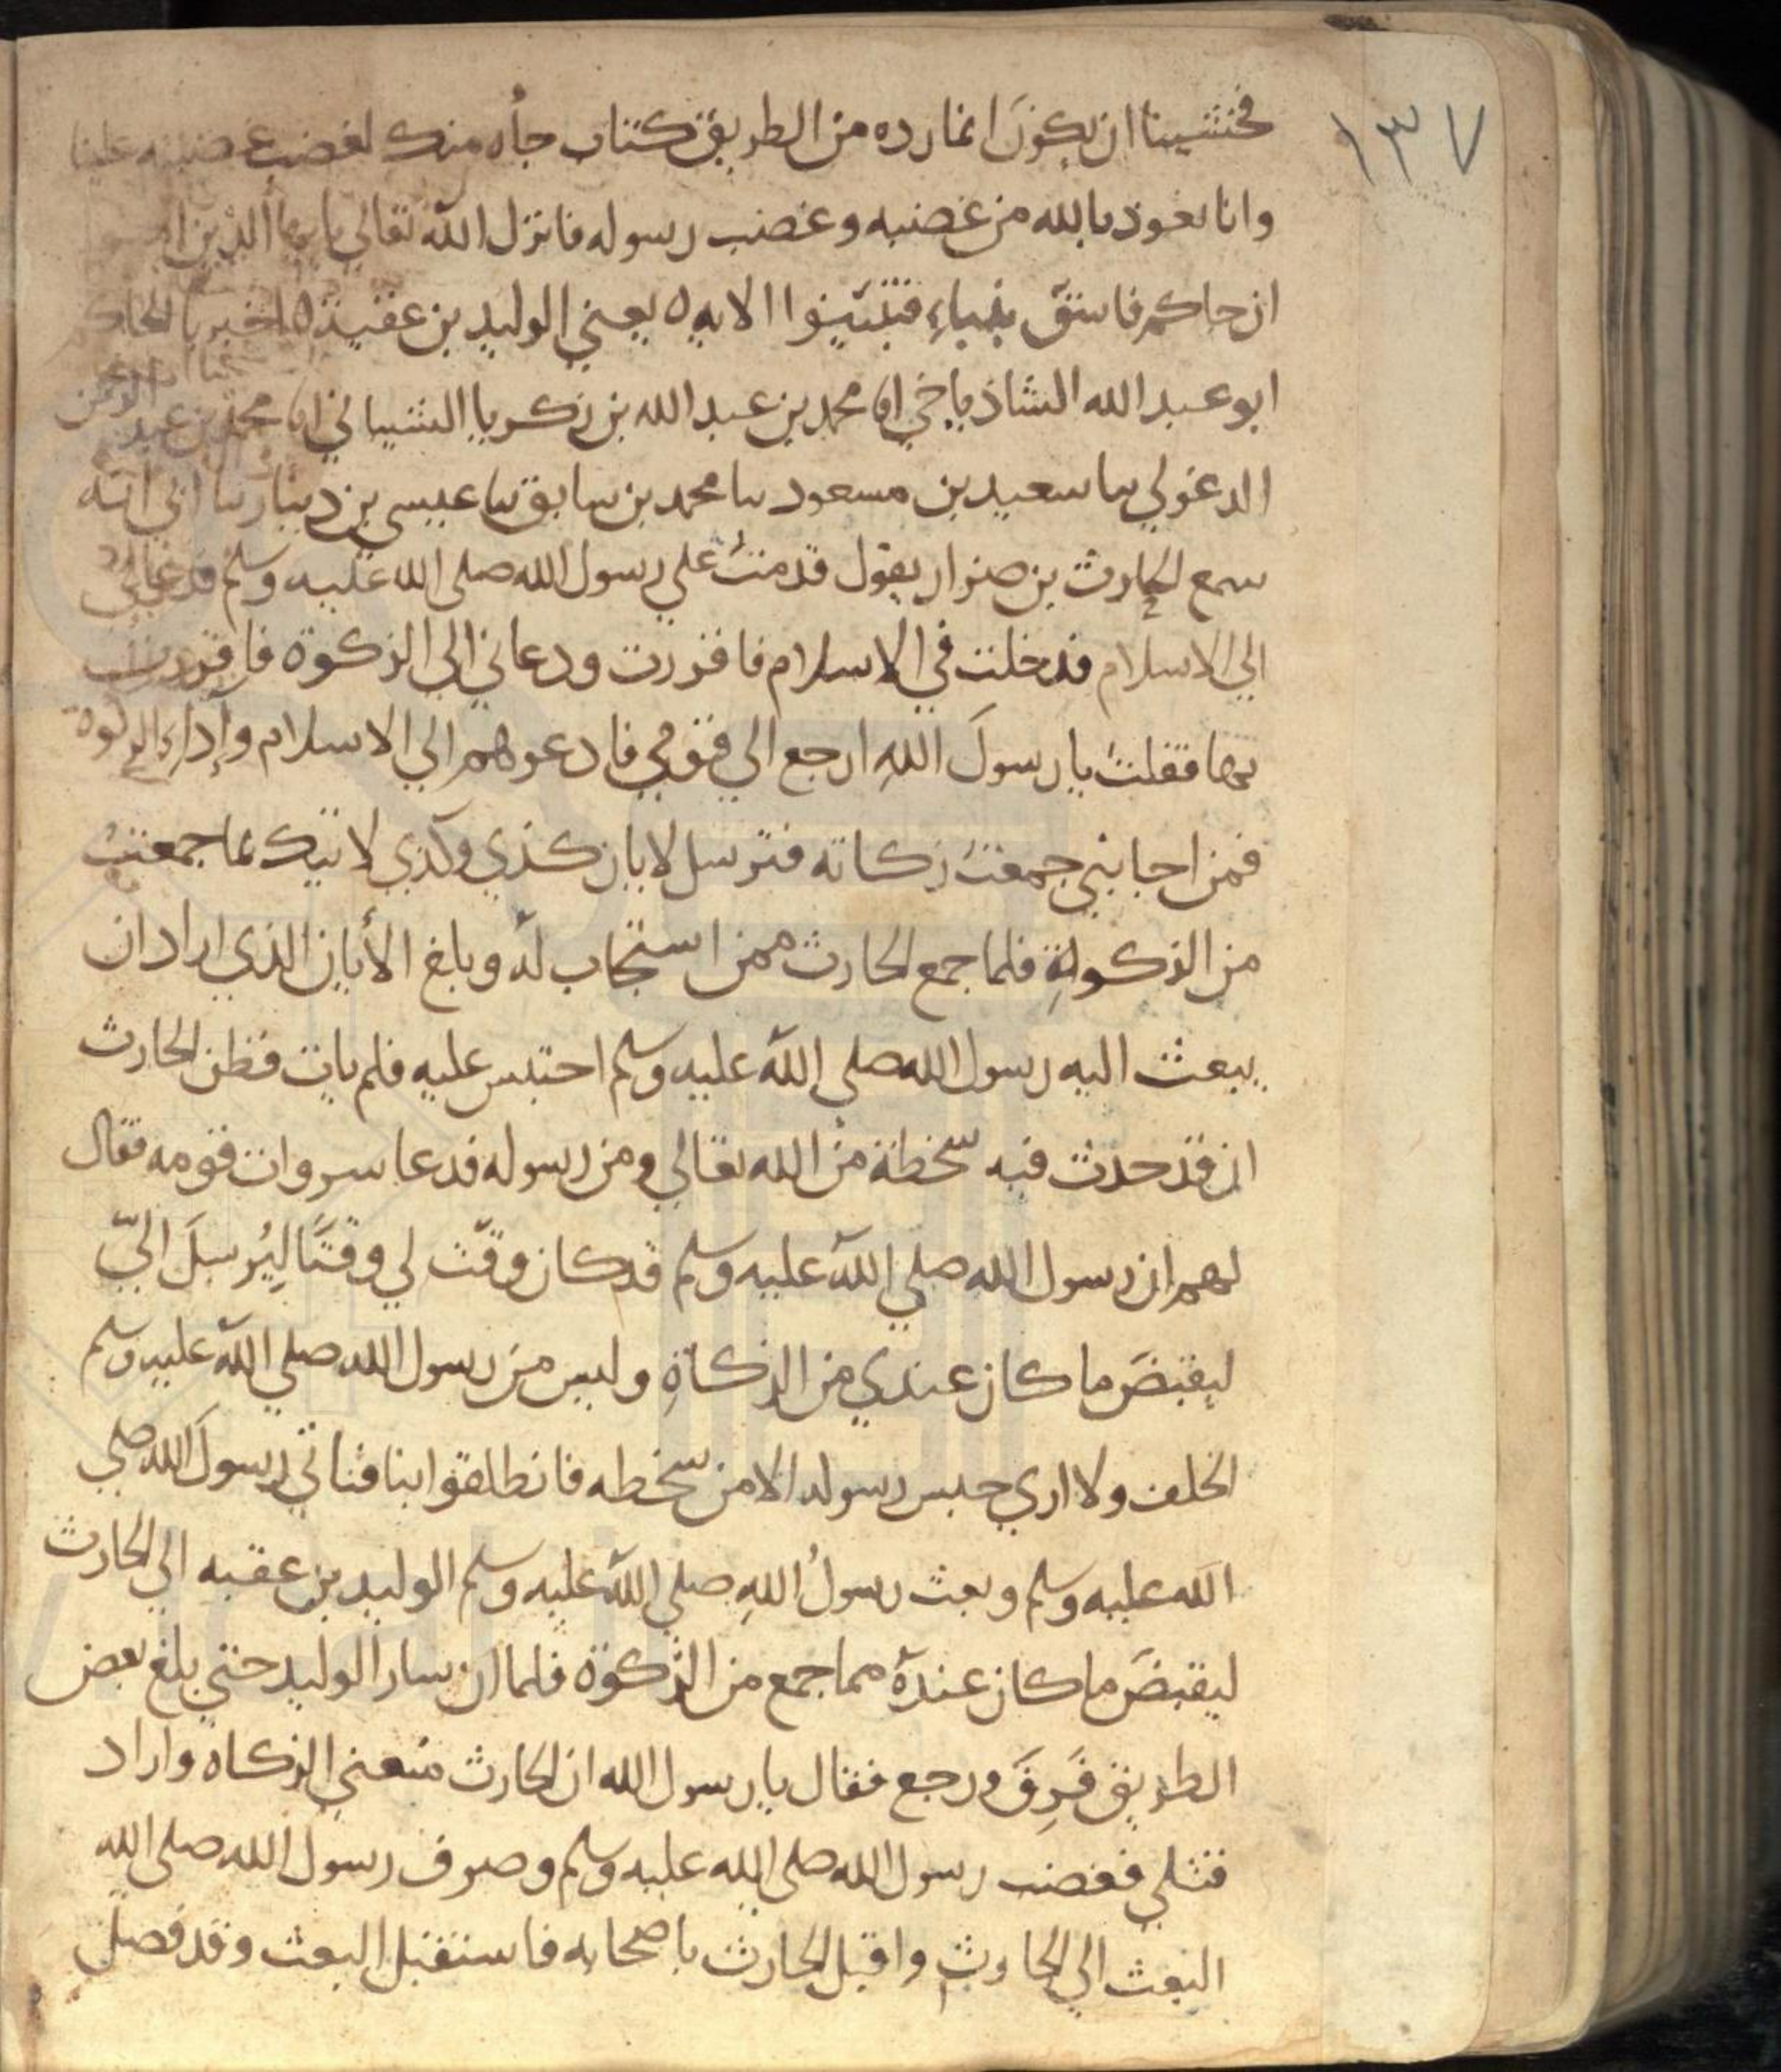 ١٣٧
فخشينا ان يكونَ انما رده من الطريق كتاب جأه منك لغضب غضبته علينا
وانا نعوذ بالله من غضبه وغضب رسوله فانزل الله تعالي يا يها الذين
ان جاكم فاسقٌ بنباءٍ فتبيّنوا الايه ه يعني الوليد بن عقبة ه اخبرنا الحاكم
ابو عبد الله الشاذياخي انا محمد بن عبد الله بن زكريا الشيباني انا محمد بن عبد الرحمن
الدغولي سا سعيد بن مسعود سا محمد بن سابق سا عيسى بن دينار سا ابي انه
سمع الحارث بن ضرار يقول قدمتُ علي رسول الله صلى الله عليه وسلم فدعاني
الي الاسلام فدخلت في الاسلام فاقررت ودعاني الي الزكوة فاقررت
بها فقلتُ يا رسولَ اللهِ ارجع الي قومي فادعوهم الي الاسلام وإداءِ الزكوة
فمن اجابني جمعتُ زكاته فترسل لابان كذي وكذي لاتيك بما جمعتُ
من الزكوةِ فلما جمع الحارث ممن استجاب له وبلغ الأبان الذي اراد ان
يبعث اليه رسول الله صلي الله عليه وسلم احتبس عليه فلم يات فظن الحارث
ان قد حدث فيه سخطة من الله تعالي ومن رسوله فدعا سروات قومه فقال
لهم ان رسول الله صلي الله عليه وسلم قد كان وقّت لي وقتًا ليُرسلَ اليّ
ليقبضَ ما كان عندي من الزكاةِ وليس من رسول الله صلي الله عليه وسلم
الخلف ولا اري حبس رسوله الا من سخطه فانطلقوا بنا فناتي رسولَ الله صلي
الله عليه وسلم وبعث رسولُ اللهِ صلي الله عليه وسلم الوليد بن عقبه الي الحارث
ليقبضَ ما كان عندهُ مما جمع من الزكوة فلما ان سار الوليد حتي بلغ بعض
الطريق فَرِقَ ورجع فقال يا رسول الله ان الحارث منعني الزكاه واراد
قتلي فغضب رسول الله صلى الله عليه وسلم وصرف رسول الله صلى الله
البعث الي الحارث واقبل الحارث باصحابه فاستقبل البعث وقد فصل